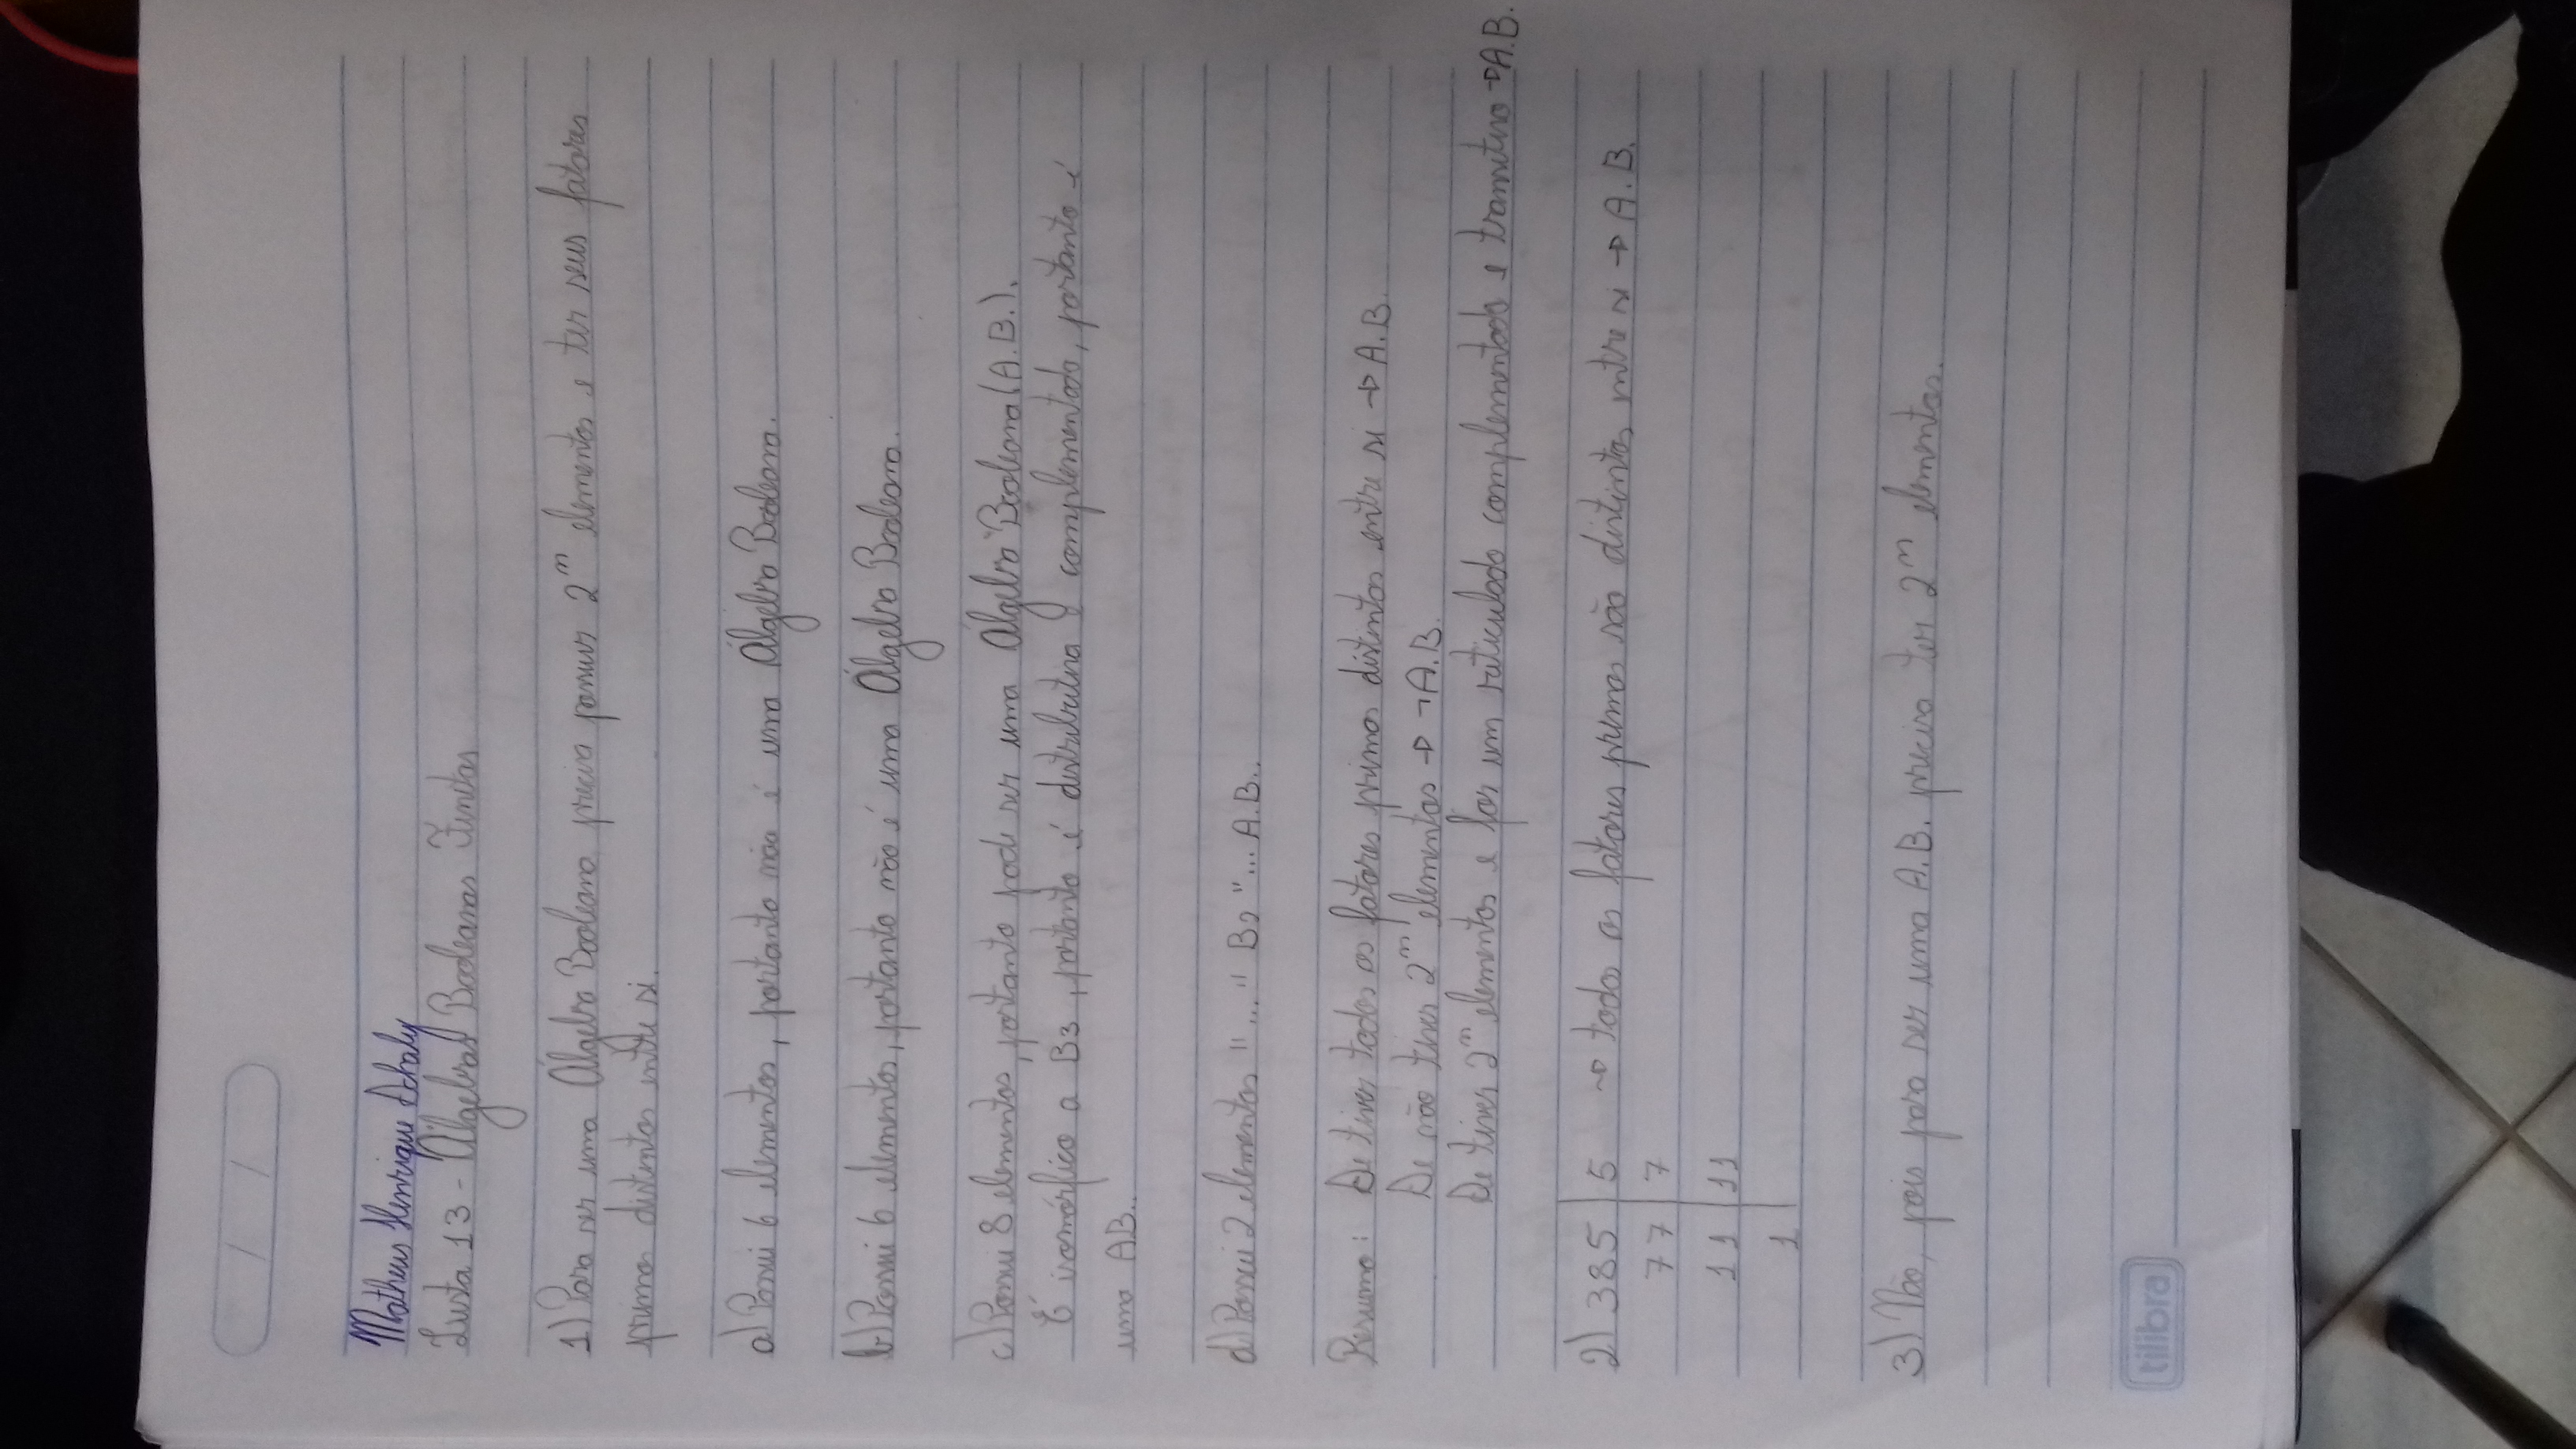 Matheus Henrique Schaly
Lista 13 - Álgebras Booleanas Finitas
1) Para ser uma Álgebra Booleana precisa possuir 2ⁿ elementos e ter seus fatores
primos distintos entre si.
a) Possui 6 elementos, portanto não é uma Álgebra Booleana.
b) Possui 6 elementos, portanto não é uma Álgebra Booleana.
c) Possui 8 elementos, portanto pode ser uma Álgebra Booleana (A.B.).
É isomórfico a B3, portanto é distributiva e complementado, portanto é
uma AB..
d) Possui 2 elementos "..." B "... A.B..
Resumo: Se tiver todos os fatores primos distintos entre si → A.B.
Se não tiver 2ⁿ elementos → ¬A.B.
Se tiver 2ⁿ elementos e for um reticulado complementado e transitivo → A.B.
2) 385 | 5 → todos os fatores primos são distintos entre si → A.B.
77 | 7
11 | 11
1
3) Não, pois para ser uma A.B. precisa ter 2ⁿ elementos.
tilibra